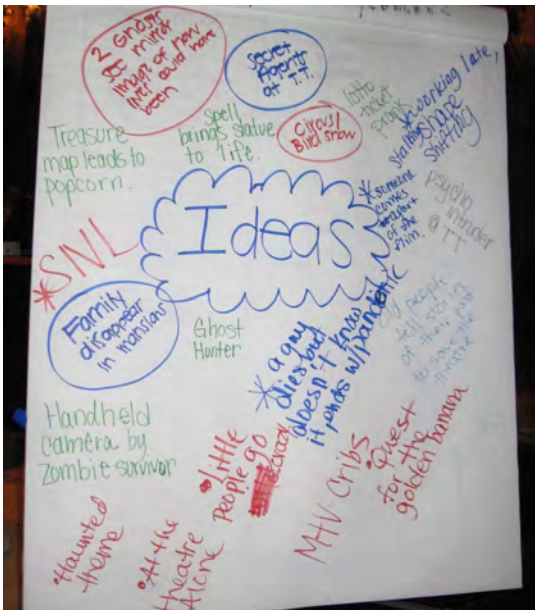 2 Ghosts
see mirror
image of how
lives could have
been
Secret
Agents
at T.T.
Treasure
map leads to
popcorn.
Spell
brings statue
to life.
Circus/
Bird show
lotto
ticket
prank
*working late,
stalking shape
shifting
Ideas
*someone
comes
apart
of the
film.
psycho
intruder
@ TT
*SNL
Family
disappear
in mansion
Ghost
Hunter
*a guy
dies but
doesn't know
it, ends w/
old people
tell stories
of their past
to save the
theatre
Handheld
camera by
Zombie survivor
•Little
people go
crazy
MTV Cribs
•Quest
for the
golden banana
•Haunted
theme
•At the
theatre
Alone